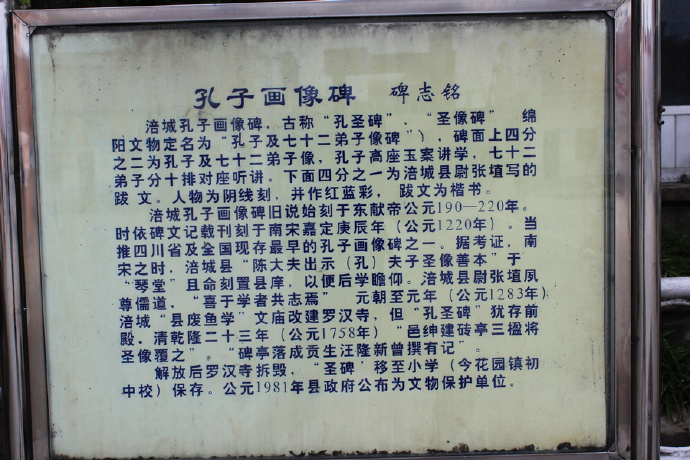 孔子画像碑 碑志铭
涪城孔子画像碑，古称“孔圣碑”．“圣像碑” 绵
阳文物定名为“孔子及七十二弟子像碑”），碑面上四分
之二为孔子及七十二弟子像，孔子高座玉案讲学，七十二
弟子分十排对座听讲。下面四分之一为涪城县尉张埴写的
跋 文。人物为阴线刻，并作红蓝彩， 跋文为楷书。
涪城孔子画像碑旧说始刻于东献帝公元190—220年。
时依碑文记载刊刻于南宋嘉定庚辰年（公元1220年）。当
推四川省及全国现存最早的孔子画像碑之一。据考证，南
宋之时，涪城县“陈大夫出示（孔）夫子圣像善本”于
“琴堂”且命刻置县庠，以便后学瞻仰。涪城县尉张埴夙
尊儒道，“喜于学者共志焉” 元朝至元年（公元1283年）
涪城“县废鱼学”文庙改建罗汉寺，但“孔圣碑”犹存前
殿．清乾隆二十三年（公元1758年）“邑绅建砖亭三楹将
圣像覆之” “碑亭落成贡生汪隆新曾撰有记”。
解放后罗汉寺拆毁，“圣碑’移至小学（今花园镇初
中校）保存。公元1981年县政府公布为文物保护单位。